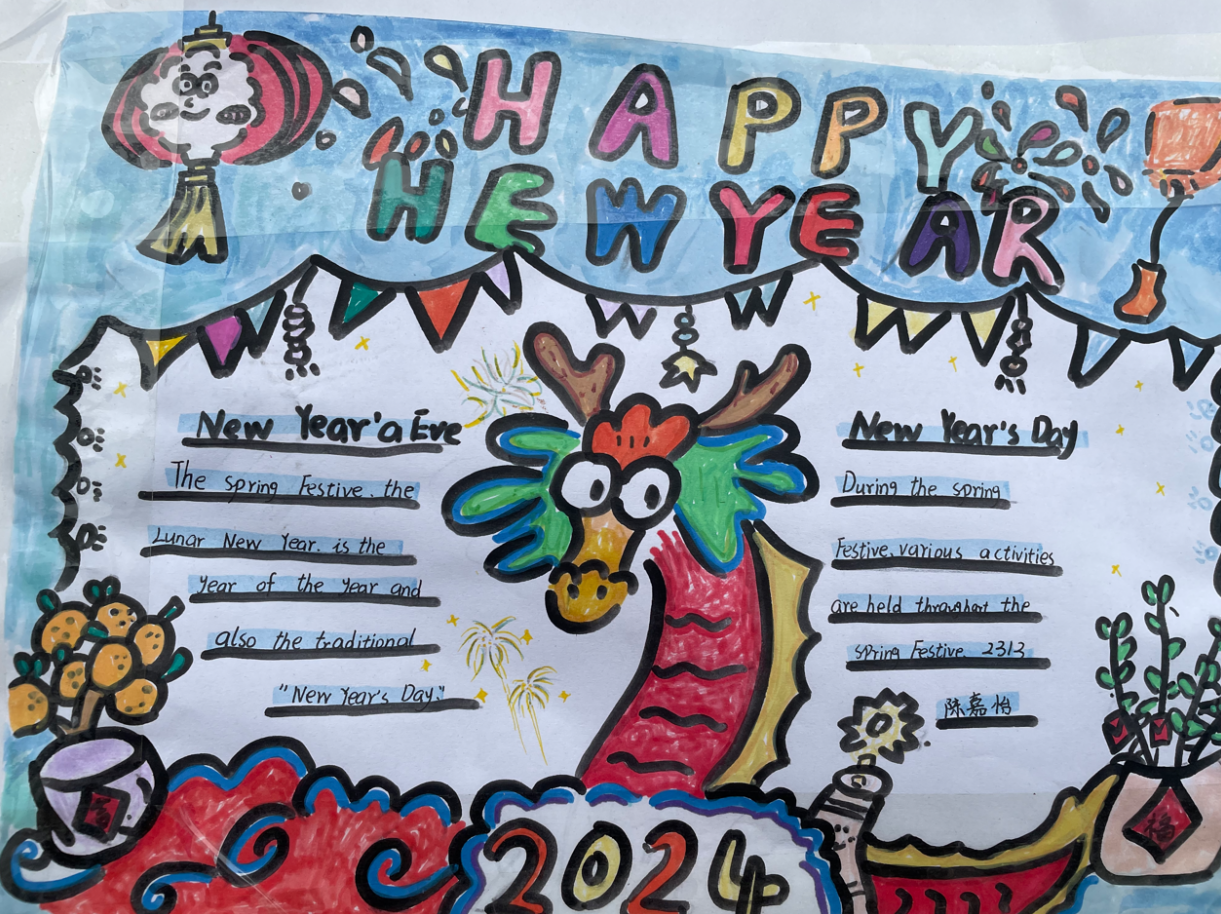 HAPPY
HEW YEAR
New Year'a Eve
The spring Festive. the
Lunar New Year. is the
year of the year and
also the traditional
"New Year's Day."
New Year's Day
During the spring
Festive, various activities
are held throughout the
spring Festive 2313
陈嘉怡
福
2024